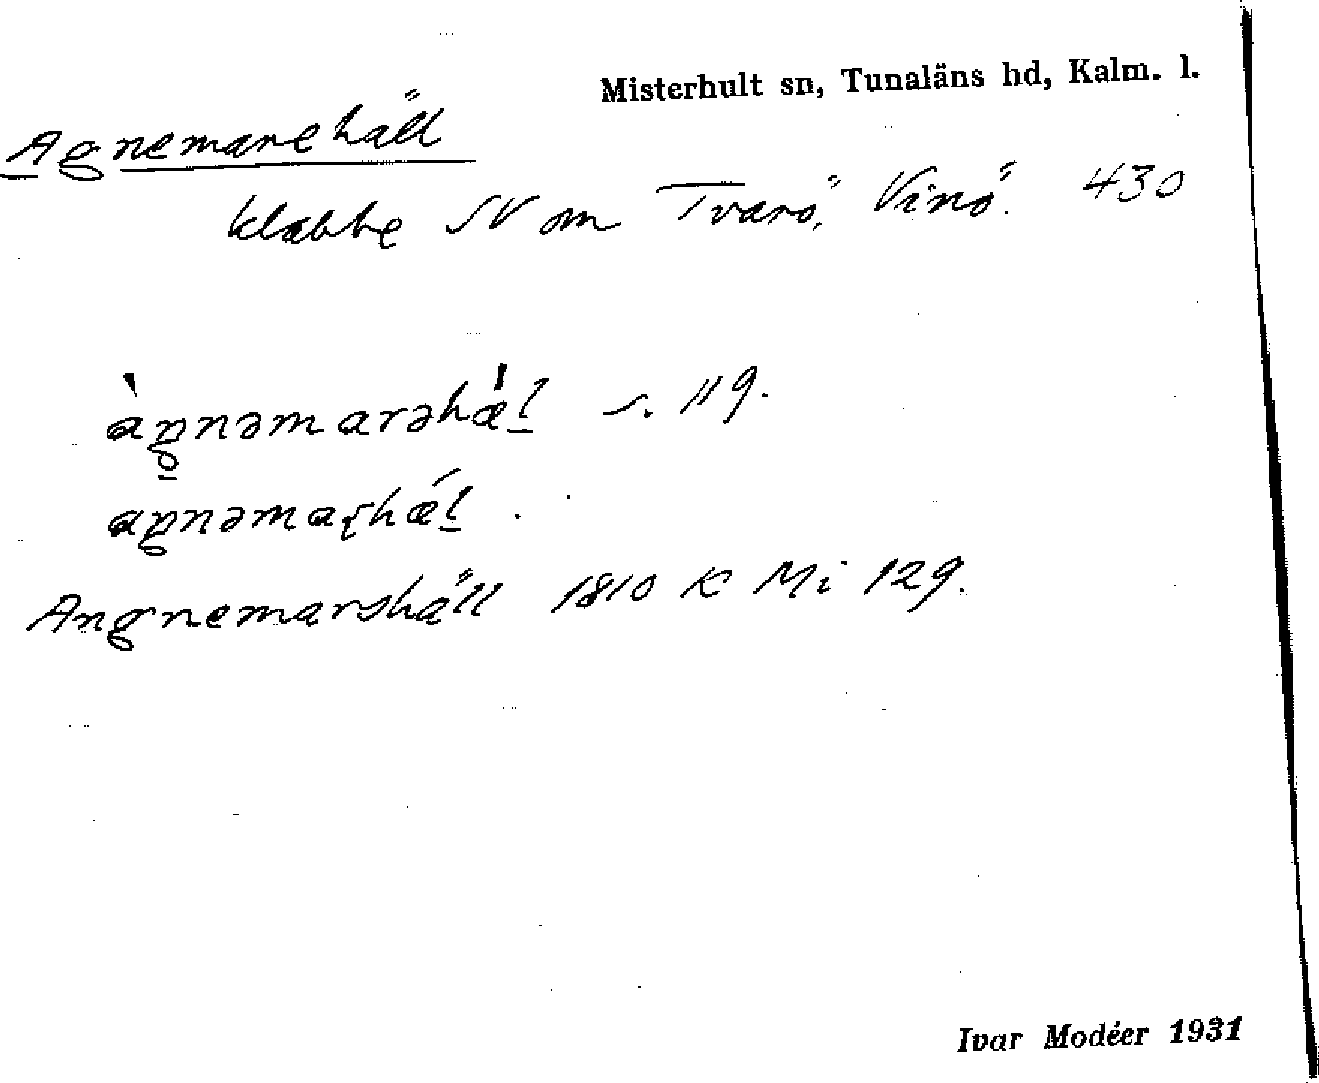 Misterhult sn, Tunaläns hd, Kalm. l.
Agnemarehäll
klabbe SV om Tvarö, Vinö. 430
àgnəmarəhæ̀l s. 119.
agnəmaɽhǽl.
Angnemarshäll 1810 K Mi 129.
Ivar Modéer 1931